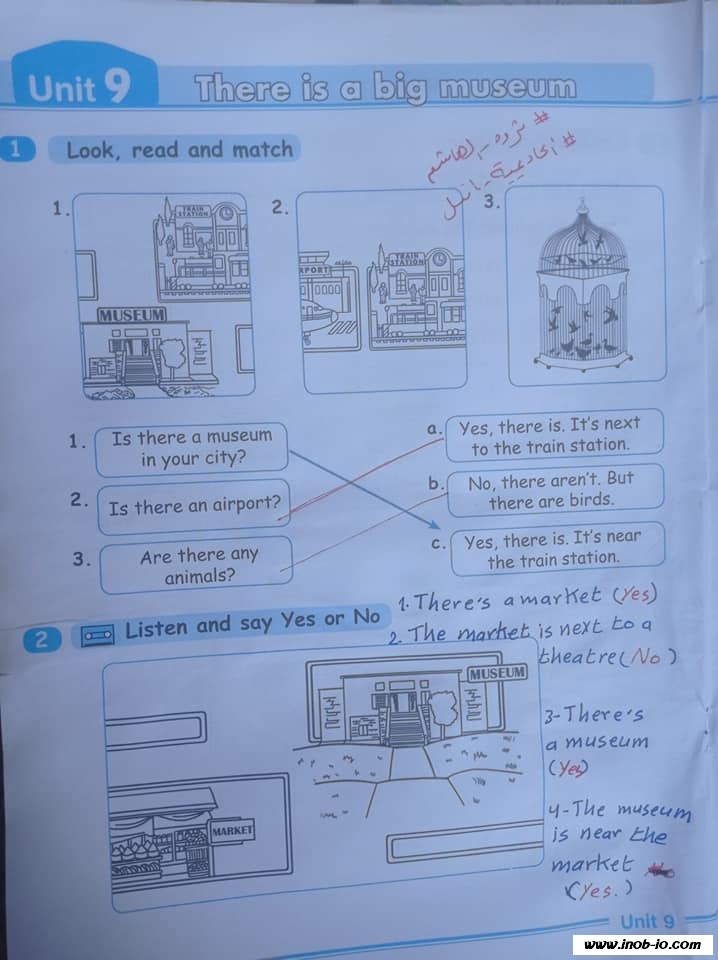 Unit 9
There is a big museum
1 Look, read and match
#شروه_الهاشم
1.
2.
3.
TRAIN STATION
MUSEUM
PORT
TRAIN STATION
1. Is there a museum
in your city?
2. Is there an airport?
3. Are there any
animals?
a. Yes, there is. It's next
to the train station.
b. No, there aren't. But
there are birds.
c. Yes, there is. It's near
the train station.
2 Listen and say Yes or No
1. There's a market (Yes)
2. The market is next to a
theatre (No)
3- There's
a museum
(Yes)
4- The museum
is near the
market
(Yes.)
MUSEUM
MARKET
Unit 9
www.inob-io.com